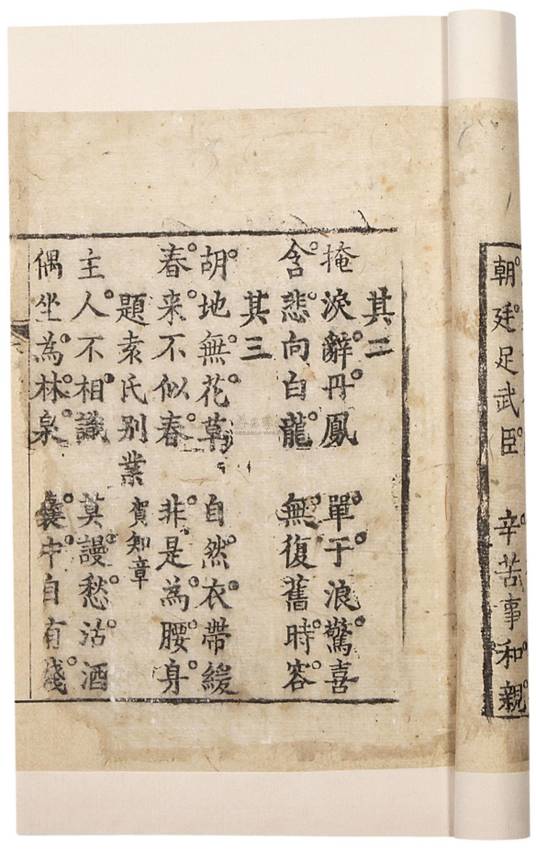 朝廷足武臣 辛苦事和親
其二
掩淚辭丹鳳 單于浪驚喜
含悲向白龍 無復舊時容
其三
胡地無花草 自然衣帶緩
春来不似春 非是為腰身
題袁氏别業 賀知章
主人不相識 莫謾愁沽酒
偶坐為林泉 囊中自有錢